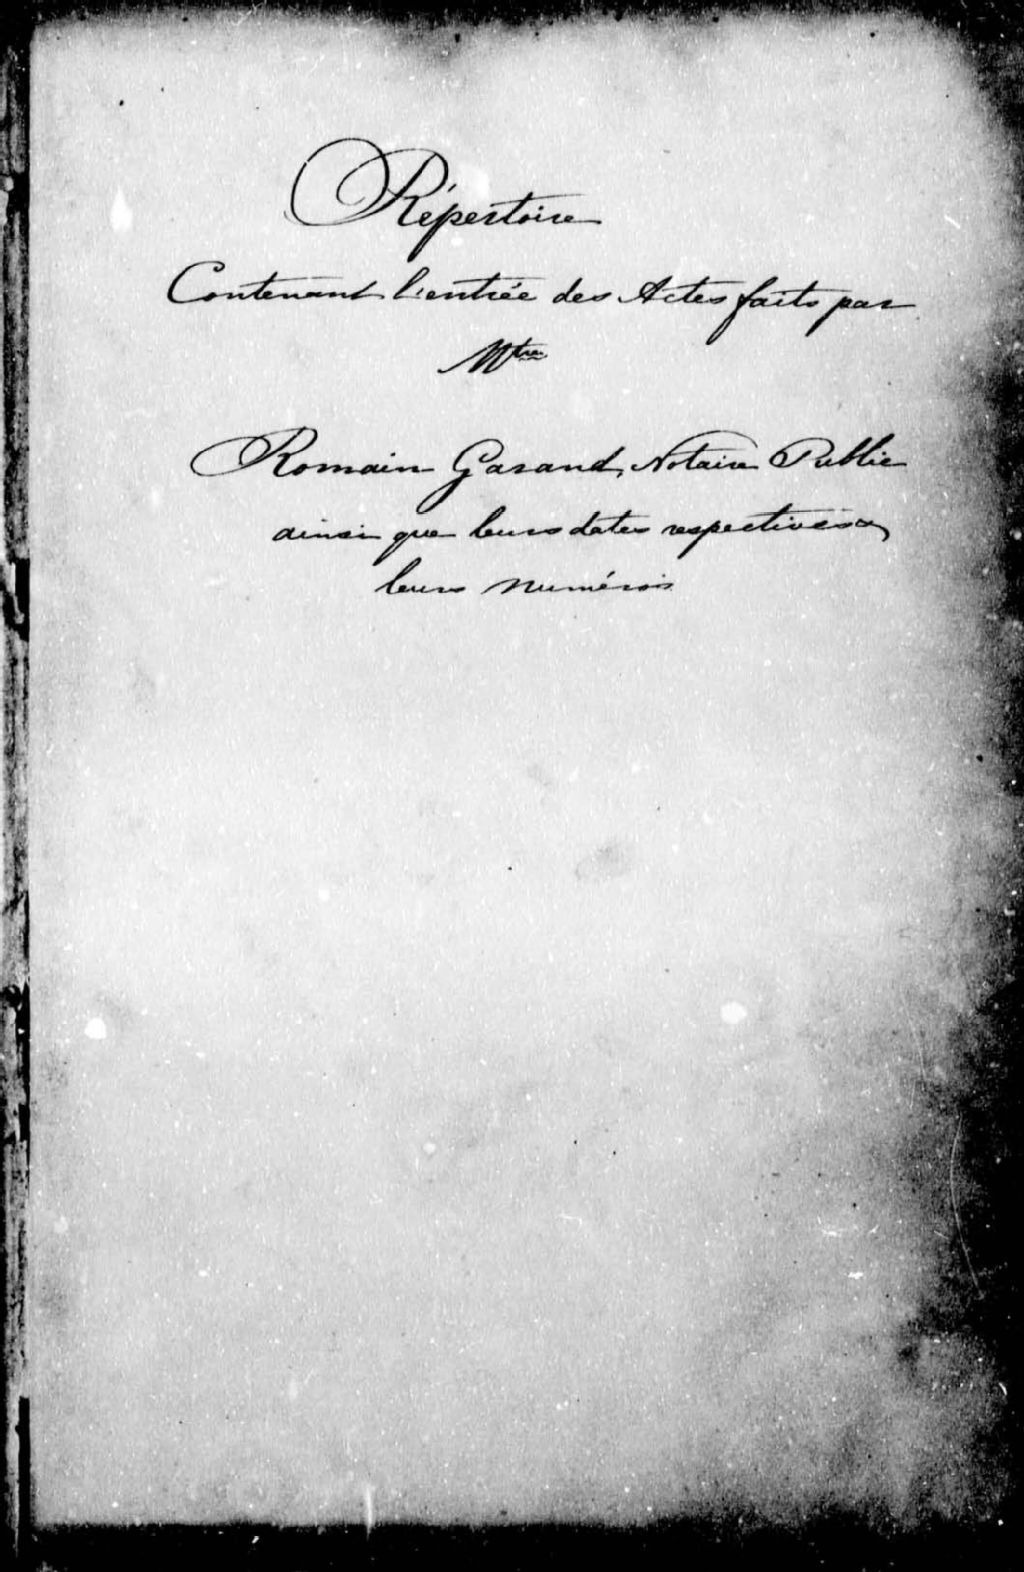 Répertoire
Contenant l'entrée des Actes faits par
Mtre
Romain Garand, Notaire Public
ainsi que leurs dates respectives &
leurs numérois